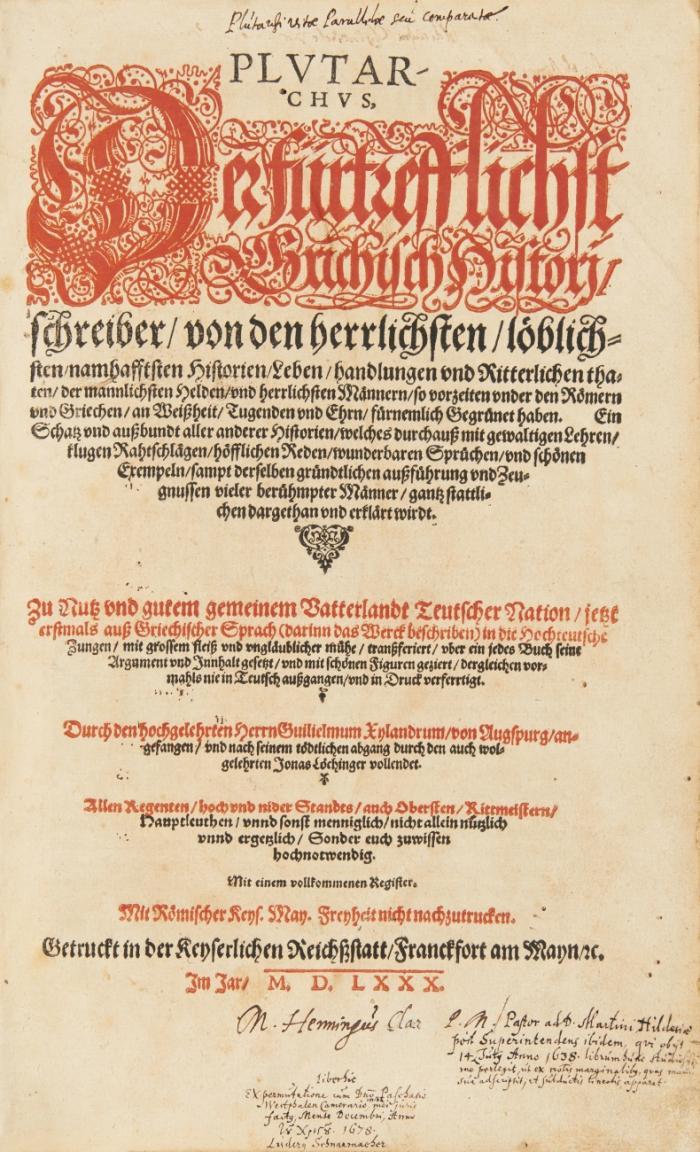 Plutarchi vitæ Parallelæ seu comparatæ.
PLVTAR-
CHVS,
Der fürtrefflichst
Grichisch History/
schreiber/ von den herrlichsten/ löblich-
sten/namhafftsten Historien/Leben/ handlungen vnd Ritterlichen tha-
ten/ der mannlichsten Helden/vnd herrlichsten Männern/so vorzeiten vnder den Römern
vnd Griechen/ an Weißheit/ Tugenden vnd Ehrn/ fürnemlich Gegrünet haben. Ein
Schatz vnd außbundt aller anderer Historien/welches durchauß mit gewaltigen Lehren/
klugen Rahtschlägen/höfflichen Reden/wunderbaren Sprüchen/vnd schönen
Exempeln/sampt derselben gründtlichen außführung vnd Zeu-
gnussen vieler berühmpter Männer/ gantz stattli-
chen dargethan vnd erklärt wirdt.
Zu Nutz vnd gutem gemeinem Vatterlandt Teutscher Nation/ jetzt
erstmals auß Griechischer Sprach (darinn das Werck beschriben) in die Hochteutsche
Zungen/ mit grossem fleiß vnd vngläublicher mühe/ transferiert/ vber ein jedes Buch seine
Argument vnd Innhalt gesetzt/ vnd mit schönen Figuren geziert/ dergleichen vor-
mahls nie in Teutsch außgangen/vnd in Druck verferrtigt.
Durch den hochgelehrten Herrn Guilielmum Xylandrum/von Augspurg/an-
gefangen/ vnd nach seinem tödtlichen abgang durch den auch wol-
gelehrten Jonas Löchinger vollendet.
Allen Regenten/ hoch vnd nider Standts/ auch Obersten/ Rittmeistern/
Hauptleuthen/ vnnd sonst menniglich/ nicht allein nützlich
vnnd ergetzlich/ Sonder euch zuwissen
hochnotwendig.
Mit einem vollkommenen Register.
Mit Römischer Keys. May. Freyheit nicht nachzutrucken.
Getruckt in der Keyserlichen Reichßstatt/Franckfort am Mayn/ꝛc.
Im Jar/ M. D. LXXX.
M. Henningus Clar
P. M. Pastor ad D. Martini Hildesiæ
post Superintendens ibidem, qvi obijt
14 July Anno 1638. librum hunc
perlegit, ut ex notis marginalibq, quas manu
sua adscripsit, et subductis lineolis apparet.
Ex permutatione cum Dno Paschasio
Westphalen Camerario
facta, Mense Decembri, Anno
1678.
Luderg Schnarmacher